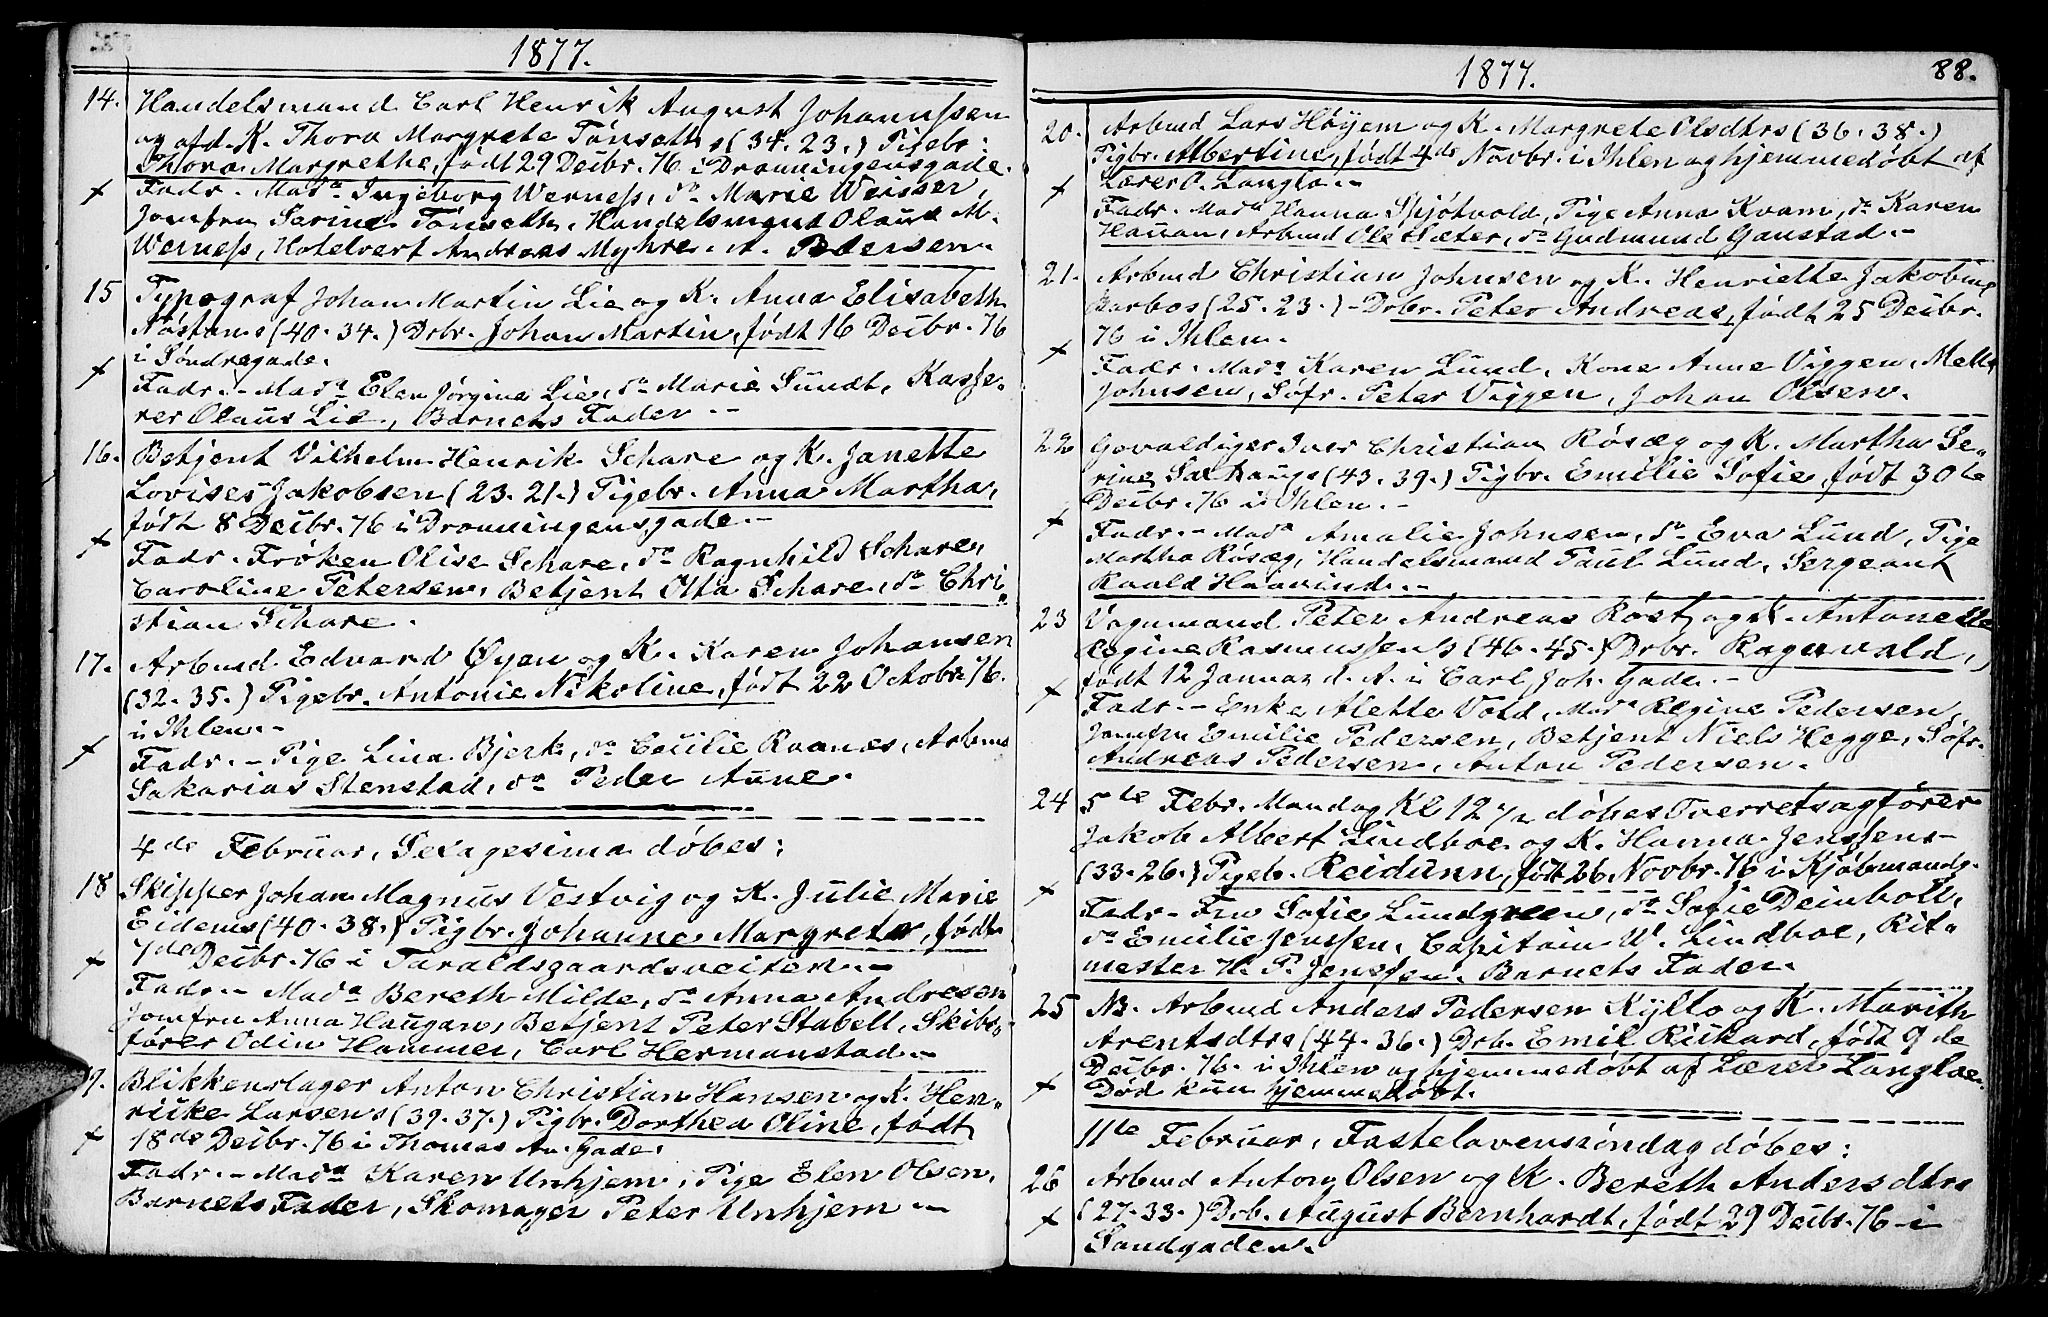 1877.
14. Handelsmand Carl Henrik August Johannssen
og afd. K. Thora Margrete Tönseths (34. 23.) Pigebr:
Thora Margrethe, født 29 Decbr. 76 i Dronningensgade.
+ Fadr. Mada Ingeborg Werness, do Marie Weisser,
Jomfru Sarine Tönseth, Handelsmand Olaus M.
Werness, Hotelvert Andreas Myhre. A. Pedersen.
15 Typograf Johan Martin Lie og K. Anna Elisabeth
Nöstans (40. 34.) Drbr. Johan Martin, født 16 Decbr. 76
i Söndregade.
+ Fadr. - Mada Elen Jörgine Lie, do Marie Sundt, Kasse-
rer Olaus Lie, Barnets Fader --
16. Betjent Vilhelm Henrik Schare og K. Janette
Lovises Jakobsen (23. 21.) Pigebr. Anna Martha,
født 8 Decbr. 76 i Dronningensgade. -
+ Fadr. Fröken Olise Schare, do Ragnhild Schare,
Caroline Petersen, Betjent Otto Schare, do Chri-
stian Schare.
17. Arbmd. Edvard Øyan og K. Karen Johansen
(32. 35.) Pigebr. Antonie Nikoline, født 22 Octobr. 76.
i Ihlen. -
+ Fadr. - Pige Lina Bjerk, do Cecilie Raanes, Arbmd
Sakarias Stenstad, do Peder Aune.
4de Februar, Sexagesima döbes:
18 Skipper Johan Magnus Vestvig og K. Julie Marie
Eidems (40. 38.) Pigbr. Johanne Margrete, født
7de Decbr. 76 i Taraldsgaardsveiten. -
+ Fadr. - Mada Bereth Milde, do Anna Andresen
Jomfru Anna Haugan, Betjent Peter Stabell, Skibs-
förer Odin Hammer, Carl Hermanstad. -
19. Blikkenslager Anton Christian Hansen og K. Hen-
ricke Larsens (39. 37.) Pigbr. Dorthea Oline, født
+ 18de Decbr. 76 i Thomas An. Gade.
Fadr. - Mada Karen Unhjem, Pige Elen Olsen,
Barnets Fader, Skomager Peter Unhjem -
1877. 88.
20. Arbmd Lars Höyem og K. Margrete Olsdtrs (36. 38.)
Pigbr. Albertine, født 4de Novbr. i Ihlen og hjemmedöbt af
+ Lærer O. Langlo. -
Fadr. Mada Hanna Skjötvold, Pige Anna Kvam, do Karen
Hauan, Arbmd Ole Sæter, do Gudmund Ganstad. -
21. Arbmd Christian Johnsen og K. Henriette Jakobine
Barbos (25. 23.) - Drbr. Peter Andreas, født 25 Decbr.
76 i Ihlen.
+ Fadr. Mada Karen Lund, Kone Anne Viggen, Mette
Johnsen, Söfr. Peter Viggen, Johan Olsen.
22 Gevaldiger Iver Christian Rösæg og K. Martha Se-
rine Salthaugs (43. 39.) Pigbr. Emilie Sofie, født 30te
Decbr. 76 i Ihlen. -
+ Fadr. - Mada Amalie Johnsen, do Eva Lund, Pige
Martha Rösæg, Handelsmand Paul Lund, Sergeant
Roald Haavind. -
23 Vognmand Peter Andreas Röst og K. Antonette
Regine Rasmussens (46. 45.) Drbr. Ragnvald,
født 12 Januar d. A. i Carl Joh. Gade. -
+ Fadr. - Enke Alette Vold, Mada Regine Pedersen,
Jomfru Emilie Pedersen, Betjent Niels Hegge, Söfr.
Andreas Pedersen, Anton Pedersen.
24 5te Febr. Mandag Kl 12 1/2 döbes Overretsagförer
Jakob Albert Lindboe og K. Hanna Jenssens -
(33. 26.) Pigeb. Reidunn, født 26 Novbr. 76 i Kjöbmandg.
+ Fadr - Fru Sofie Lundgreen, do Sofie Deinboll,
do Emilie Jenssen, Capitain W. Lindboe, Rit-
mester H. P. Jenssen, Barnets Fader.
25 NB. Arbmd Anders Pedersen Kyllo og K. Marith
Arentsdtrs (44. 36.) Drb. Emil Rickard, født 9de
Decbr. 76. i Ihlen og hjemmedöbt af Lærer Langloe.
+ Död kun hjemmedöbt.
11te Februar, Fastelavenssöndag döbes:
26 Arbmd Anton Olsen og K. Bereth Andersdtrs
+ (27. 33.) Drb. August Bernhardt, født 29 Decbr. 76 i
Sandgaden.